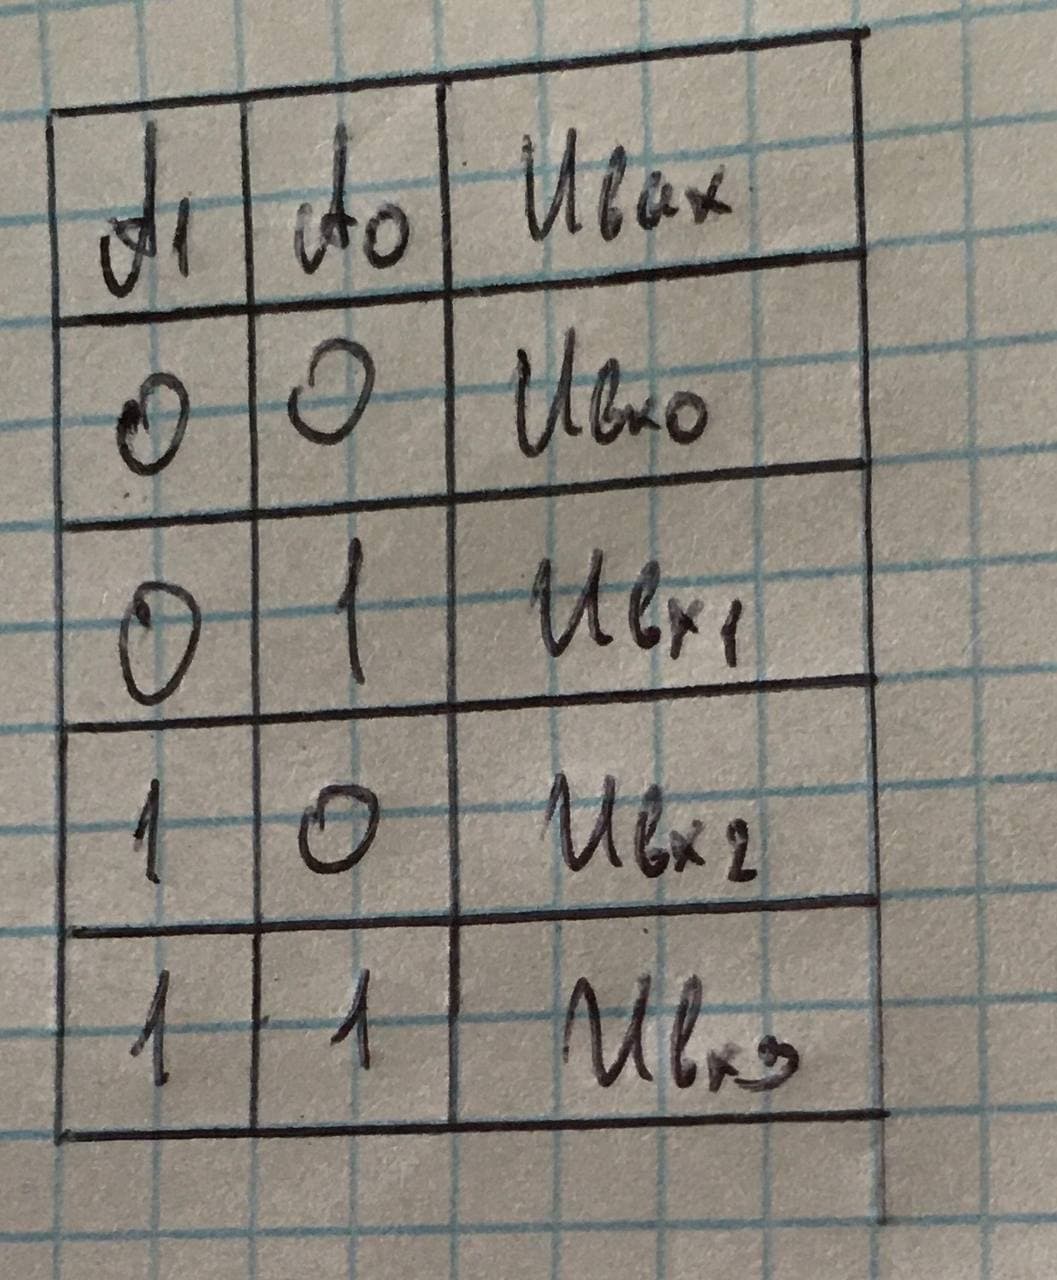 A1 A0 Uвых
0 0 Uвх0
0 1 Uвх1
1 0 Uвх2
1 1 Uвх3